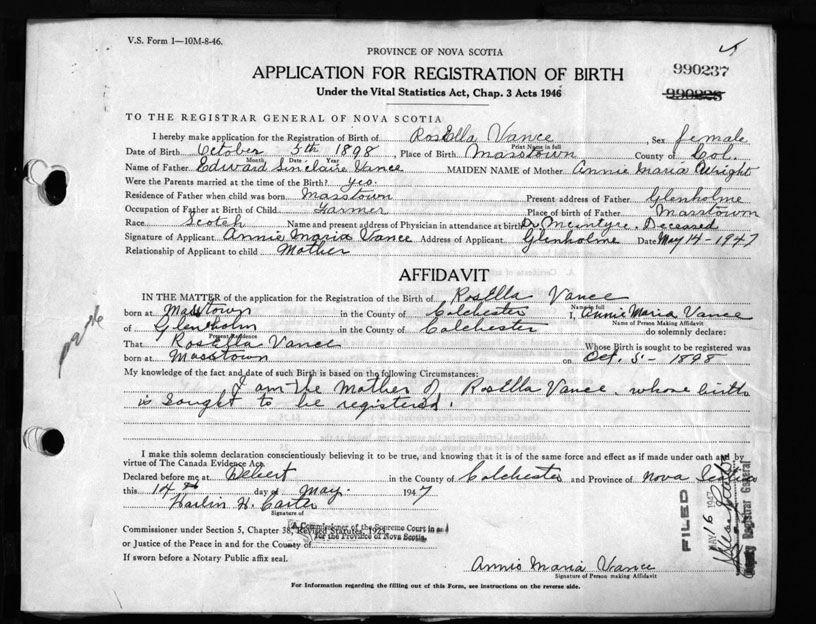 V.S. Form 1—10M-8-46.
PROVINCE OF NOVA SCOTIA
990237
APPLICATION FOR REGISTRATION OF BIRTH
990223
Under the Vital Statistics Act, Chap. 3 Acts 1946
TO THE REGISTRAR GENERAL OF NOVA SCOTIA
I hereby make application for the Registration of Birth of RosElla Vance, Sex female
Print Name in full
Date of Birth October 5th 1898, Place of Birth Masstown County of Col.
Month Date Year
Name of Father Edward Sinclaire Vance MAIDEN NAME of Mother Annie Maria Wright
Were the Parents married at the time of the Birth? yes.
Residence of Father when child was born Masstown Present address of Father Glenholme
Occupation of Father at Birth of Child Farmer Place of birth of Father Masstown
Race Scotch Name and present address of Physician in attendance at birth Dr. McIntyre. Deceased
Signature of Applicant Annie Maria Vance Address of Applicant Glenholme Date May 14 - 1947
Relationship of Applicant to child Mother
AFFIDAVIT
IN THE MATTER of the application for the Registration of the Birth of RosElla Vance
Name in full
born at Masstown in the County of Colchester I, Annie Maria Vance
Name of Person Making Affidavit
of Glenholm in the County of Colchester do solemnly declare:
Present Residence
That RosElla Vance Whose Birth is sought to be registered was
born at Masstown on Oct. 5 - 1898
My knowledge of the fact and date of such Birth is based on the following Circumstances:
I am the Mother of RosElla Vance, whose birth
is sought to be registered.
I make this solemn declaration conscientiously believing it to be true, and knowing that it is of the same force and effect as if made under oath and by
virtue of The Canada Evidence Act.
Declared before me at Debert in the County of Colchester and Province of Nova Scotia
this 14th day of May 1947
Harlin H. Carter
Signature of
A Commissioner of the Supreme Court in and
Commissioner under Section 5, Chapter 38, Revised Statutes, 1923.
for the Province of Nova Scotia.
or Justice of the Peace in and for the County of
If sworn before a Notary Public affix seal.
FILED
MAY 16 1947
Deputy Registrar General
Annie Maria Vance
Signature of Person making Affidavit
For Information regarding the filling out of this Form, see instructions on the reverse side.